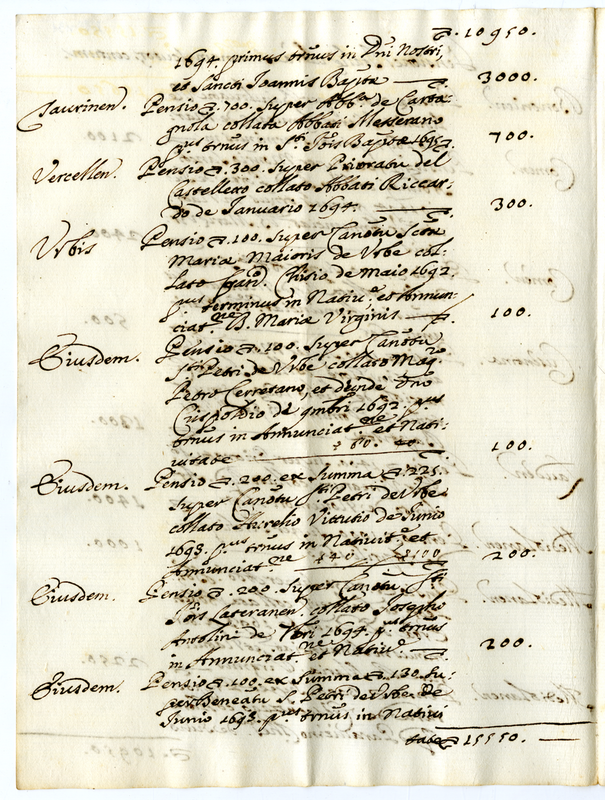 10950.
1694. primus trnus in Dni Nostri,
et Sancti Joannis Bapta — 3000.
Taurinen. Pensio 700. super Abba de
gnola collata Abbati Messerano
pus trnus in Sti Jois Baptae 1695. 700.
Vercellen. Pensio 300. super Prioratu del
Castelletto collato Abbati Riccar-
do de Januario 1694. — 300.
Urbis Pensio 100. super Canotu Sctae
Mariae Maioris de Urbe col-
lato Chisio de maio 1692.
pus terminus in Nativ. et Annun-
ciatne B. Mariae Virginis — 100.
Eiusdem. Pensio 100. super Canotu
Sti Petri de Urbe collato
Petro Cerretano, et deinde Dno
de 9mbri 1692. pus
trnus in Annunciatne et Nati-
vitate 60. 40. 100.
Eiusdem. Pensio 200. ex summa 225.
super Canotu Sti Petri de Urbe
collato Aurelio Vittutio de Junio
1693. pus trnus in Nativit. et
Annunciatne 140 200.
Eiusdem. Pensio 200. super Canotu Sti
Jois Lateranen. collato Josepho
Antolini de 1694. pus trnus
in Annunciatne et Nativ. — 200.
Eiusdem. Pensio 100. ex summa 130. su-
per Beneatu S. Petri de Urbe de
Junio 1693. pus trnus in Nativi
15550. —